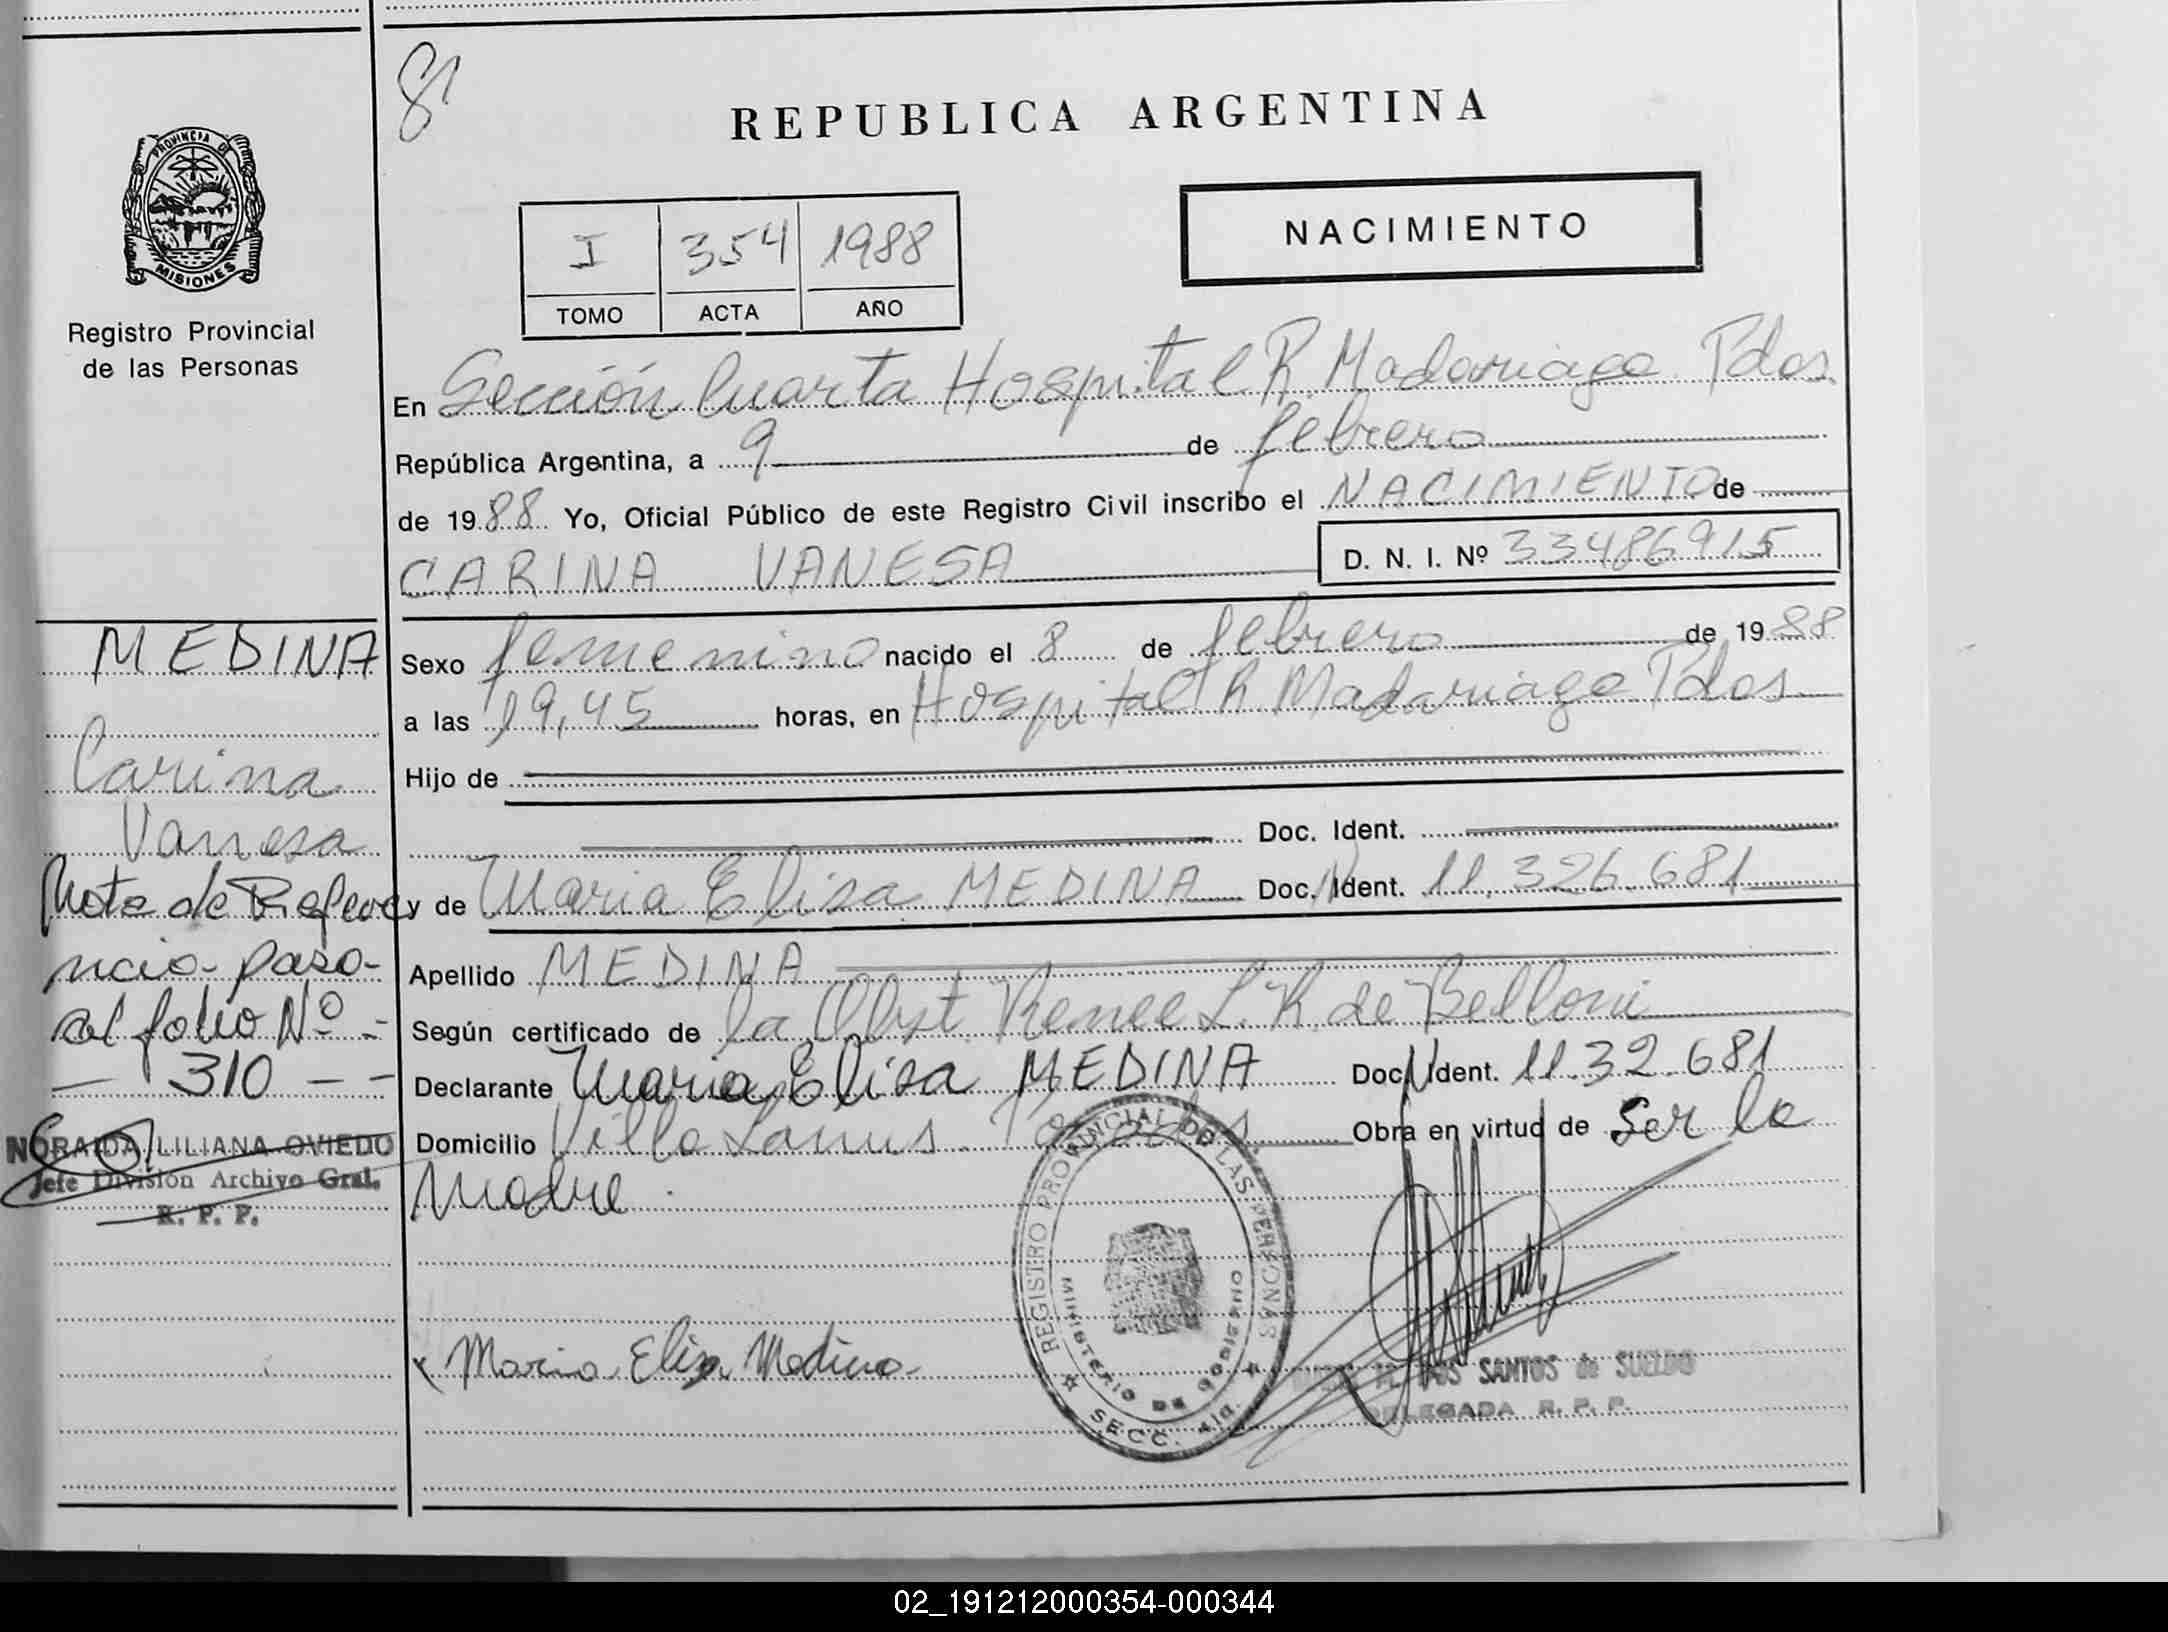 81
REPUBLICA ARGENTINA
PROVINCIA DE
MISIONES
Registro Provincial
de las Personas
NACIMIENTO
I 354 1988
TOMO ACTA AÑO
En Sección Cuarta Hospital R Madariaga Pdas.
República Argentina, a 9 de febrero
de 1988 Yo, Oficial Público de este Registro Civil inscribo el NACIMIENTO de
CARINA VANESA D. N. I. Nº 33486915
Sexo femenino nacido el 8 de febrero de 1988
a las 19,45 horas, en Hospital R Madariaga Pdas.
Hijo de
Doc. Ident.
y de Maria Elisa MEDINA Doc. Ident. 11.326.681
Apellido MEDINA
Según certificado de la Obst. Renee L. R. de Belloni
Declarante Maria Elisa MEDINA Doc. Ident. 11.32.681
Domicilio Villa Lanus. Posadas Obra en virtud de Ser la
Madre.
MEDINA
Carina
Vanesa
Nota de Refere
ncia- pasa-
al folio Nº -
- 310 - -
NORAIDA LILIANA OVIEDO
Jefe División Archivo Gral.
R. P. P.
Maria Elisa Medina
REGISTRO PROVINCIAL DE LAS PERSONAS
MINISTERIO DE GOBIERNO
SECC. 4ta.
DOS SANTOS de SUELDO
DELEGADA R. P. P.
02_191212000354-000344